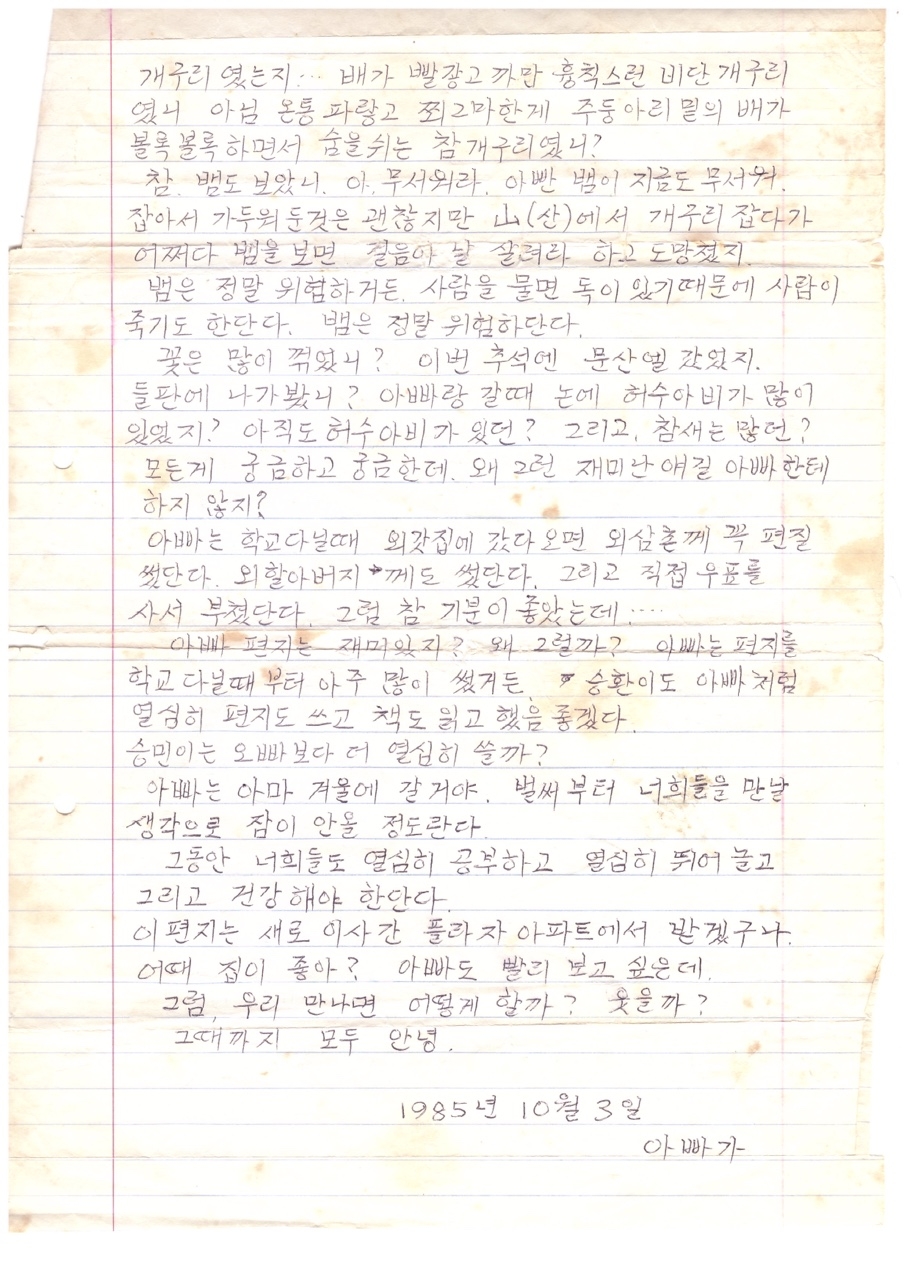 개구리 였는지… 배가 빨갛고 까만 흉칙스런 비단개구리
였니 아님 온통 파랗고 쬐그마한게 주둥아리 밑의 배가
볼록볼록하면서 숨을쉬는 참개구리였니?
참. 뱀도 보았니. 아. 무서워라. 아빤 뱀이 지금도 무서워.
잡아서 가두워둔것은 괜찮지만 山(산)에서 개구리 잡다가
어쩌다 뱀을 보면 걸음아 날 살려라 하고 도망쳤지.
뱀은 정말 위험하거든. 사람을 물면 독이 있기때문에 사람이
죽기도 한단다. 뱀은 정말 위험하단다.
꽃은 많이 꺾었니? 이번 추석엔 문산엘 갔었지.
들판에 나가봤니? 아빠랑 갈때 논에 허수아비가 많이
있었지? 아직도 허수아비가 있던? 그리고, 참새는 많던?
모든게 궁금하고 궁금한데. 왜 그런 재미난 얘길 아빠한테
하지 않지?
아빠는 학교다닐때 외갓집에 갔다오면 외삼촌께 꼭 편질
썼단다. 외할아버지 께도 썼단다. 그리고 직접 우표를
사서 부쳤단다. 그럼 참 기분이 좋았는데‥‥
아빠 편지는 재미있지? 왜 그럴까? 아빠는 편지를
학교 다닐때 부터 아주 많이 썼거든. 승환이도 아빠처럼
열심히 편지도 쓰고 책도 읽고 했음 좋겠다.
승민이는 오빠보다 더 열심히 쓸까?
아빠는 아마 겨울에 갈거야. 벌써부터 너희들을 만날
생각으로 잠이 안올 정도란다.
그동안 너희들도 열심히 공부하고 열심히 뛰어 놀고
그리고 건강해야 한단다.
이편지는 새로 이사간 플라자 아파트에서 받겠구나.
어때 집이 좋아? 아빠도 빨리 보고 싶은데.
그럼, 우리 만나면 어떻게 할까? 웃을까?
그때까지 모두 안녕.
1985년 10월 3일
아빠가